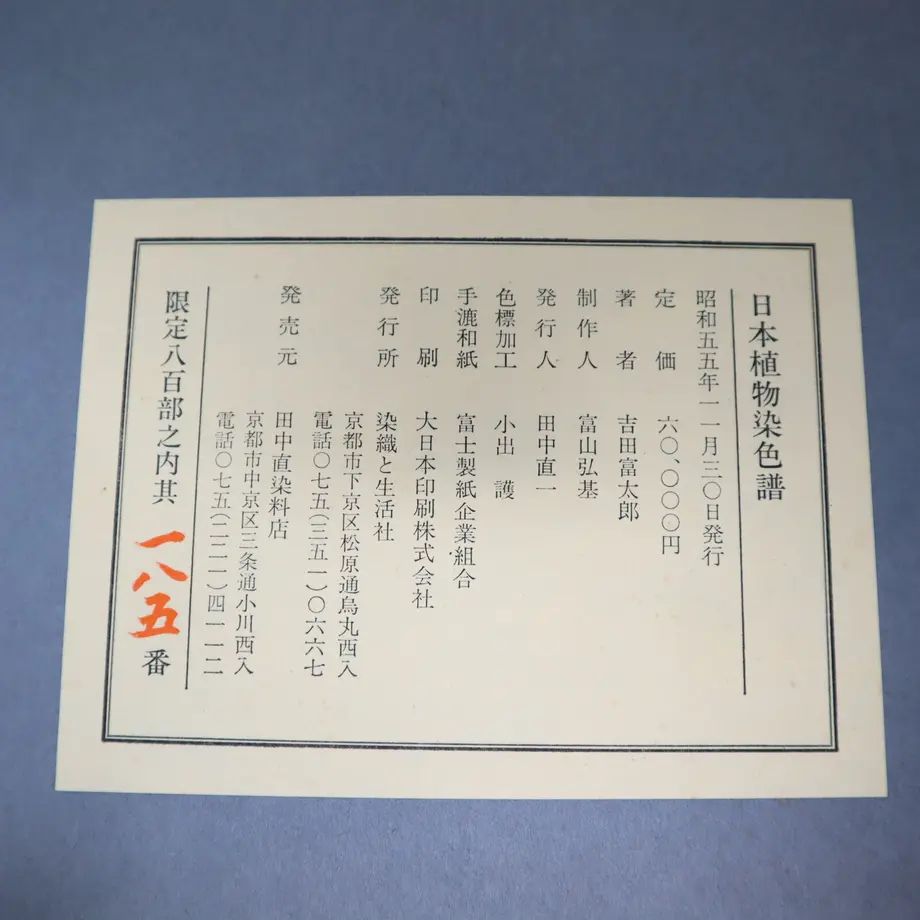 日本植物染色譜
昭和五五年一一月三〇日発行
定価 六〇、〇〇〇円
著者 吉田富太郎
制作人 富山弘基
発行人 田中直一
色標加工 小出護
手漉和紙 富士製紙企業組合
印刷 大日本印刷株式会社
発行所 染織と生活社
京都市下京区松原通烏丸西入
電話〇七五(三五一)〇六六七
発売元 田中直染料店
京都市中京区三条通小川西入
電話〇七五(二二一)四一一二
限定八百部之内其 一八五 番